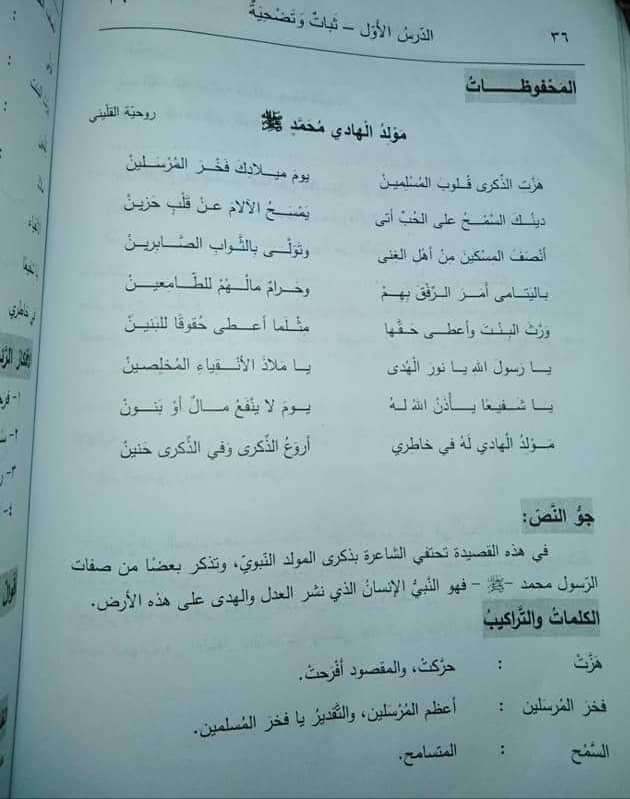 ٣٦ الدّرسُ الأوّل – ثَباتٌ وَتَضْحِيَةٌ
المَحْفوظــــاتُ
مَوْلِدُ الْهادي مُحَمَّدٍ ﷺ
روحيّة القلّيني
هَزَّتِ الذّكرى قُلوبَ المُسْلِمينْ يومَ ميلادِكَ فَخْرَ المُرْسَلينْ
دينُكَ السّمْحُ على الحُبِّ أتى يَمْسَحُ الآلامَ عَنْ قَلْبٍ حَزينْ
أنْصَفَ المِسْكينَ مِنْ أهْلِ الغنى وتَوَلّى بِالثّوابِ الصّابِرينْ
بِاليَتامى أمَرَ الرِّفْقَ بِهِمْ وحَرامٌ مالُهُمْ لِلطّامِعينْ
ورّثَ البِنْتَ وأعطى حَقَّها مِثْلَما أعْطى حُقوقًا للبَنينْ
يا رَسولَ اللهِ يا نورَ الهُدى يا مَلاذَ الأتْقِياءِ المُخْلِصينْ
يا شَفيعًا يأْذَنُ اللهُ لهُ يومَ لا يَنْفَعُ مالٌ أوْ بَنونْ
مَوْلِدُ الْهادي لَهُ في خاطِري أروَعُ الذّكرى وَفي الذّكرى حَنينْ
جوُّ النَّصّ:
في هذه القصيدة تحتفي الشاعرة بذكرى المولد النّبويّ، وتذكر بعضًا من صفات
الرّسول محمد -ﷺ- فهو النّبيُّ الإنسانُ الذي نشر العدل والهدى على هذه الأرض.
الكلماتُ والتَّراكيبُ
هَزَّتْ : حرّكتْ، والمقصود أفْرحتْ.
فخرَ المُرسَلين : أعظم المُرْسَلين، والتَّقديرُ يا فخرَ المُسلمين.
السَّمْح : المتسامح.
في خاطري